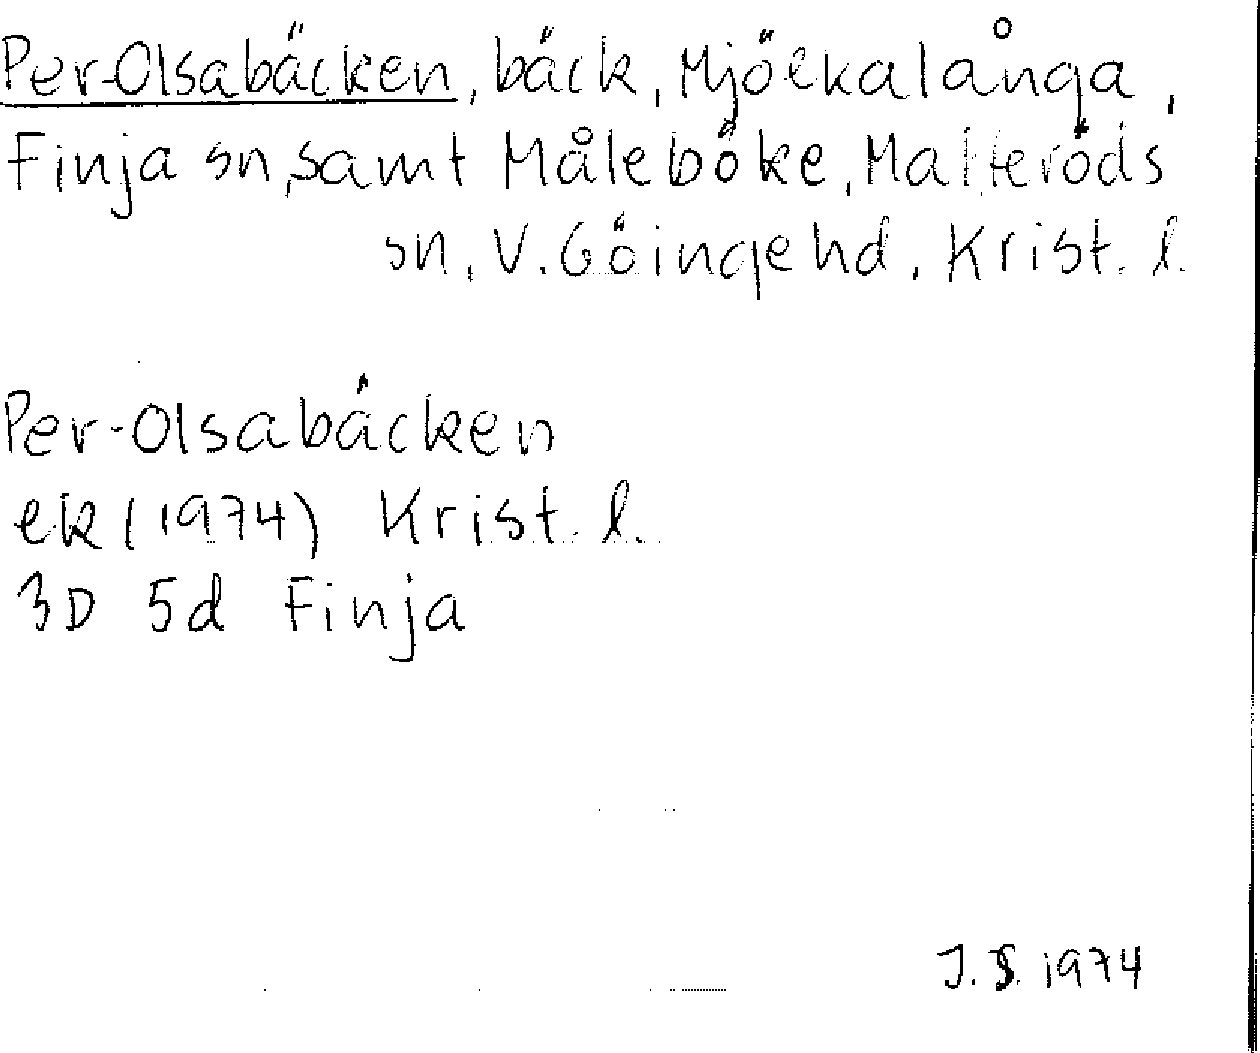 Per-Olsabäcken, bäck, Mjölkalånga,
Finja sn, samt Måleböke, Matteröds
sn, V. Göinge hd, Krist. l.
Per-Olsabäcken
ek (1974) Krist. l.
3D 5d Finja
J.S. 1974